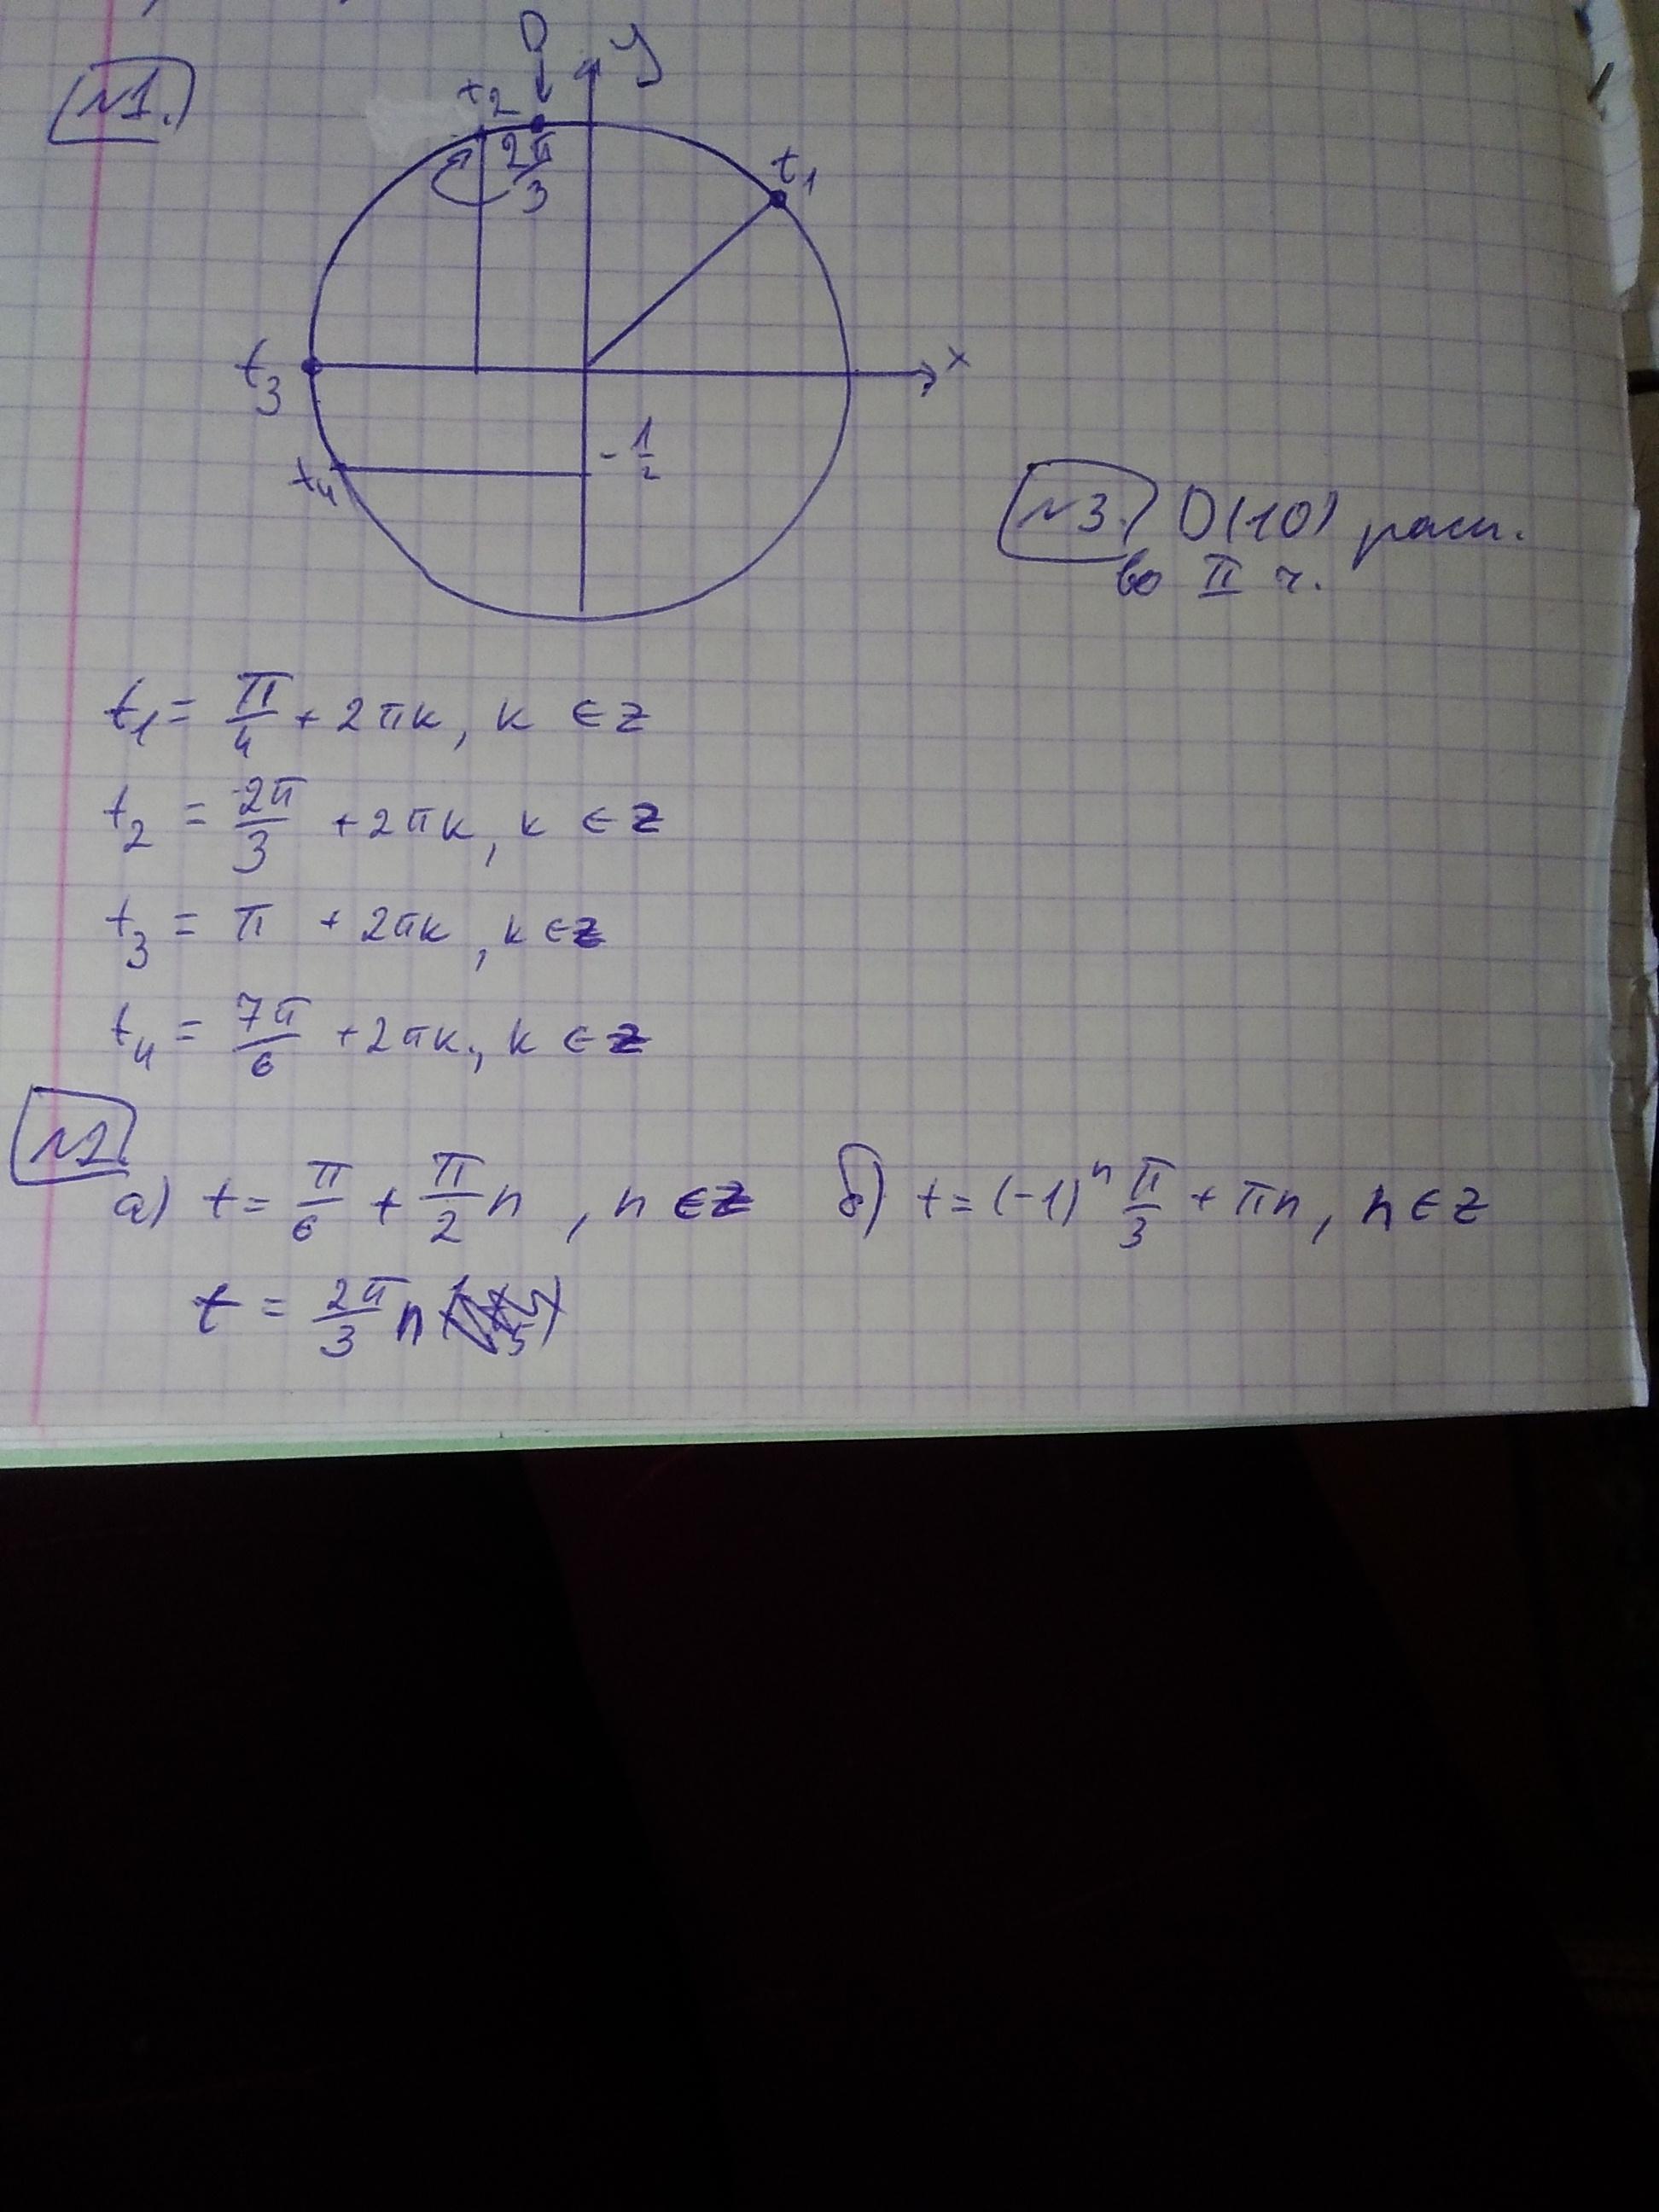 №1.
D
y
t₂
2π/3
t₁
t₃
x
-1/2
t₄
№3. D(10) расп.
во II ч.
t₁ = π/4 + 2πk, k ∈ z
t₂ = 2π/3 + 2πk, k ∈ z
t₃ = π + 2πk, k ∈ z
t₄ = 7π/6 + 2πk, k ∈ z
№2.
а) t = π/6 + π/2 n, n ∈ z б) t = (-1)ⁿ π/3 + πn, n ∈ z
t = 2π/3 n